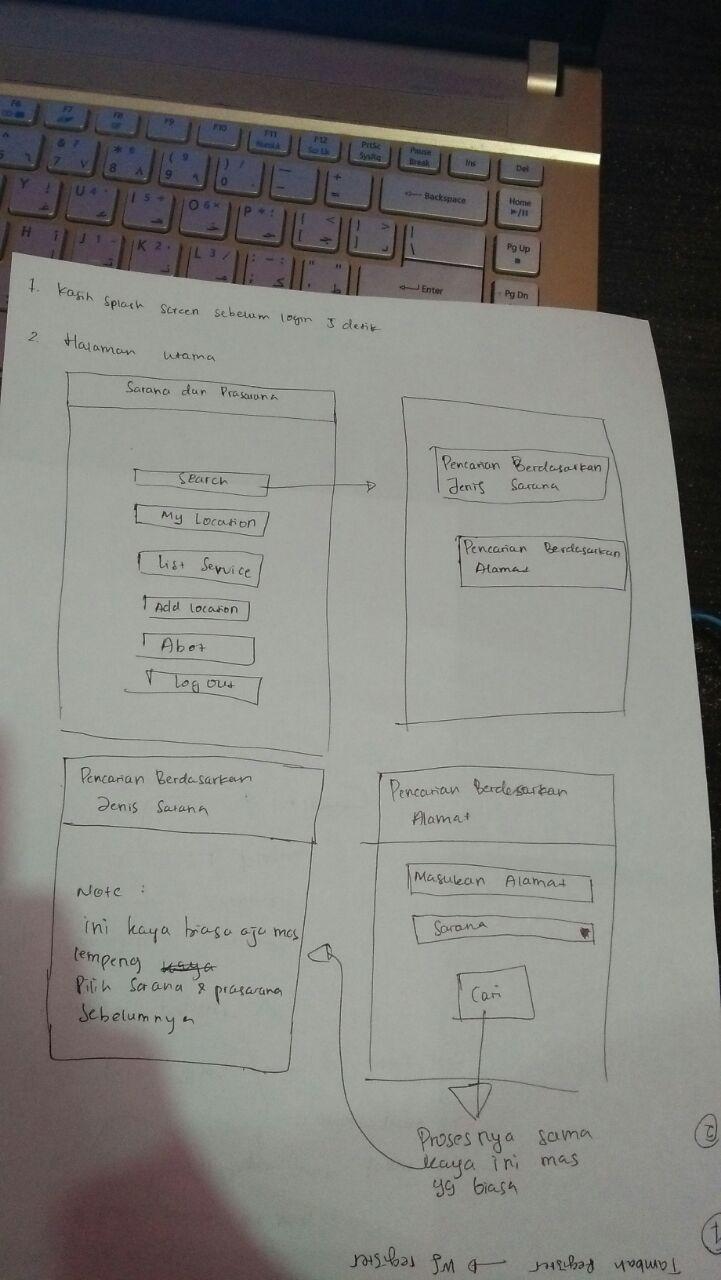 F6
F7
F8
F9
F10
F11
NumLk
F12
Scr Lk
PrtSc
SysRq
Pause
Break
Ins
Del
& 7
* 8
( 9
) 0
Backspace
Home
Y
U 4
I 5
O 6
P *
Pg Up
H
J 1
K 2
L 3
Enter
Pg Dn
1. Kasih splash screen sebelum login 5 detik
2. Halaman utama
Sarana dan Prasarana
Search
My Location
List Service
Add location
Abot
Log out
Pencarian Berdasarkan
Jenis Sarana
Pencarian Berdasarkan
Alamat
Pencarian Berdasarkan
Jenis Sarana
Note :
ini kaya biasa aja mas
lempeng kaya
Pilih Sarana & prasarana
Sebelumnya
Pencarian Berdasarkan
Alamat
Masukan Alamat
Sarana
Cari
Prosesnya sama
kaya ini mas
yg biasa
2
1
Tambah Register → Wf register